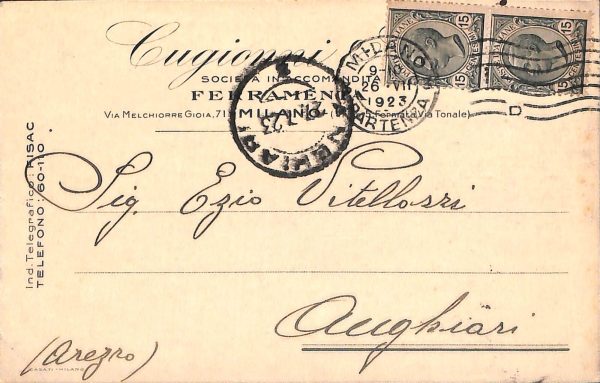 Cugionni
SOCIETÀ IN ACCOMANDITA
FERRAMENTA
VIA MELCHIORRE GIOIA, 71 MILANO Fermata Via Tonale)
Ind. Telegrafico: FISAC
TELEFONO: 60-110
MILANO
9-
26 VII
1923
PARTENZA
15
15
15
15
D
ANGHIARI
Sig. Ezio Vitellozzi
Anghiari
(Arezzo)
CASATI - MILANO